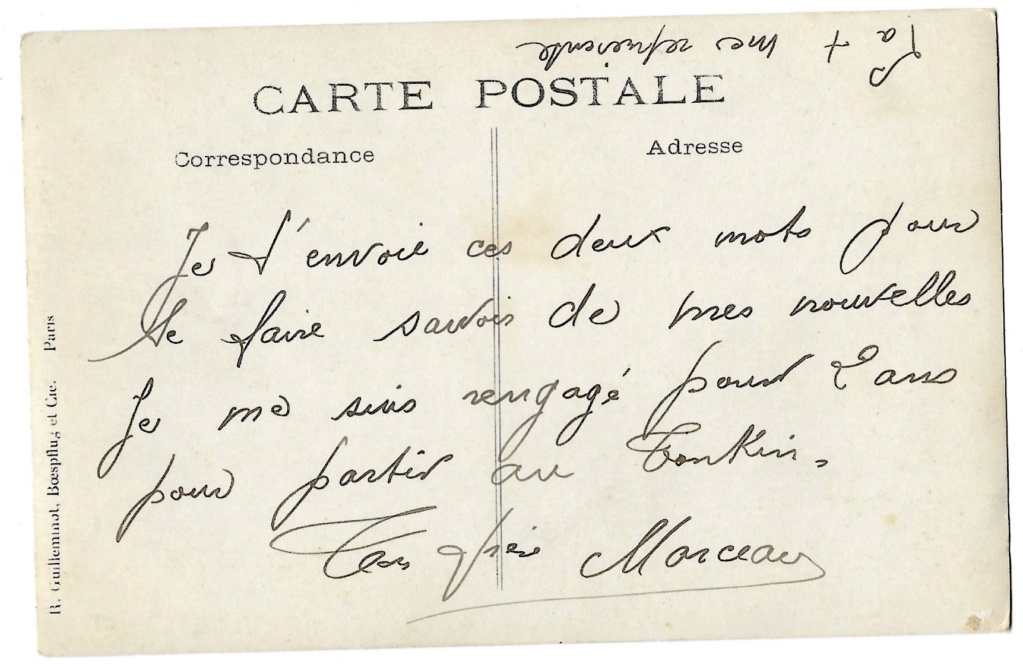 La + me represente
CARTE POSTALE
Correspondance
Adresse
Je t'envoie ces deux mots pour
te faire savoir de mes nouvelles
Je me suis rengagé pour 2 ans
pour partir au Tonkin.
Ton frère Marceau
R. Guilleminot, Bœspflug et Cie. Paris